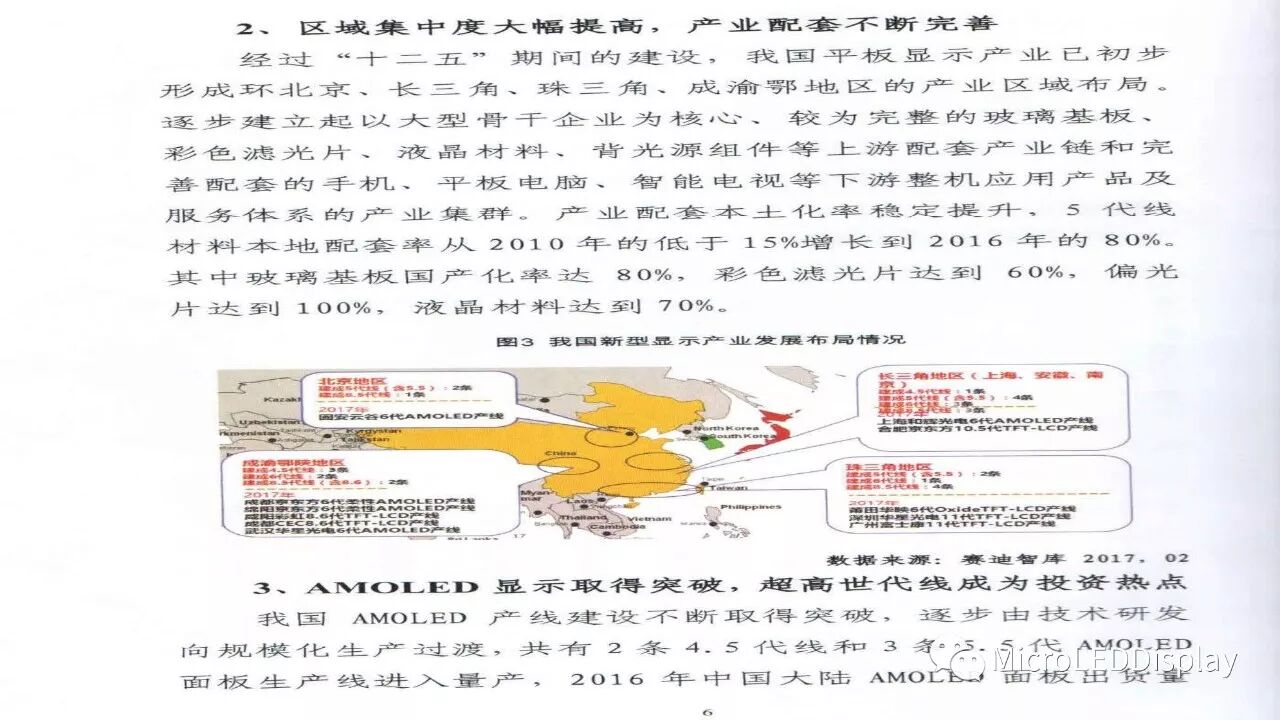 2、区域集中度大幅提高，产业配套不断完善
经过“十二五”期间的建设，我国平板显示产业已初步
形成环北京、长三角、珠三角、成渝鄂地区的产业区域布局。
逐步建立起以大型骨干企业为核心、较为完整的玻璃基板、
彩色滤光片、液晶材料、背光源组件等上游配套产业链和完
善配套的手机、平板电脑、智能电视等下游整机应用产品及
服务体系的产业集群。产业配套本土化率稳定提升，5 代线
材料本地配套率从 2010 年的低于 15%增长到 2016 年的 80%。
其中玻璃基板国产化率达 80%，彩色滤光片达到 60%，偏光
片达到 100%，液晶材料达到 70%。
图3 我国新型显示产业发展布局情况
北京地区
建成5代线（含5.5）：2条
建成8.5代线：1条
2017年
固安云谷6代AMOLED产线
长三角地区（上海、安徽、南
京）
建成4.5代线：1条
建成5代线（含5.5）：4条
建成6代线：3条
建成8.5代线：3条
2017年
上海和辉光电6代AMOLED产线
合肥京东方10.5代TFT-LCD产线
成渝鄂陕地区
建成4.5代线：3条
建成6代线：2条
建成8.5代线（含8.6）：2条
2017年
成都京东方6代柔性AMOLED产线
绵阳京东方6代柔性AMOLED产线
咸阳彩虹8.6代TFT-LCD产线
成都CEC8.6代TFT-LCD产线
武汉华星光电6代AMOLED产线
珠三角地区
建成5代线（含5.5）：2条
建成6代线：1条
建成8.5代线：4条
2017年
莆田华映6代OxideTFT-LCD产线
深圳华星光电11代TFT-LCD产线
广州富士康11代TFT-LCD产线
Kazakh
Uzbekistan
Kyrgyzstan
Tajikistan
China
North Korea
South Korea
Taiwan
Myan-
mar
Laos
Thailand
Vietnam
Cambodia
Philippines
数据来源：赛迪智库 2017，02
3、AMOLED 显示取得突破，超高世代线成为投资热点
我国 AMOLED 产线建设不断取得突破，逐步由技术研发
向规模化生产过渡，共有 2 条 4.5 代线和 3 条 5.5 代 AMOLED
面板生产线进入量产，2016 年中国大陆 AMOLED 面板出货量
MicroLEDDisplay
6